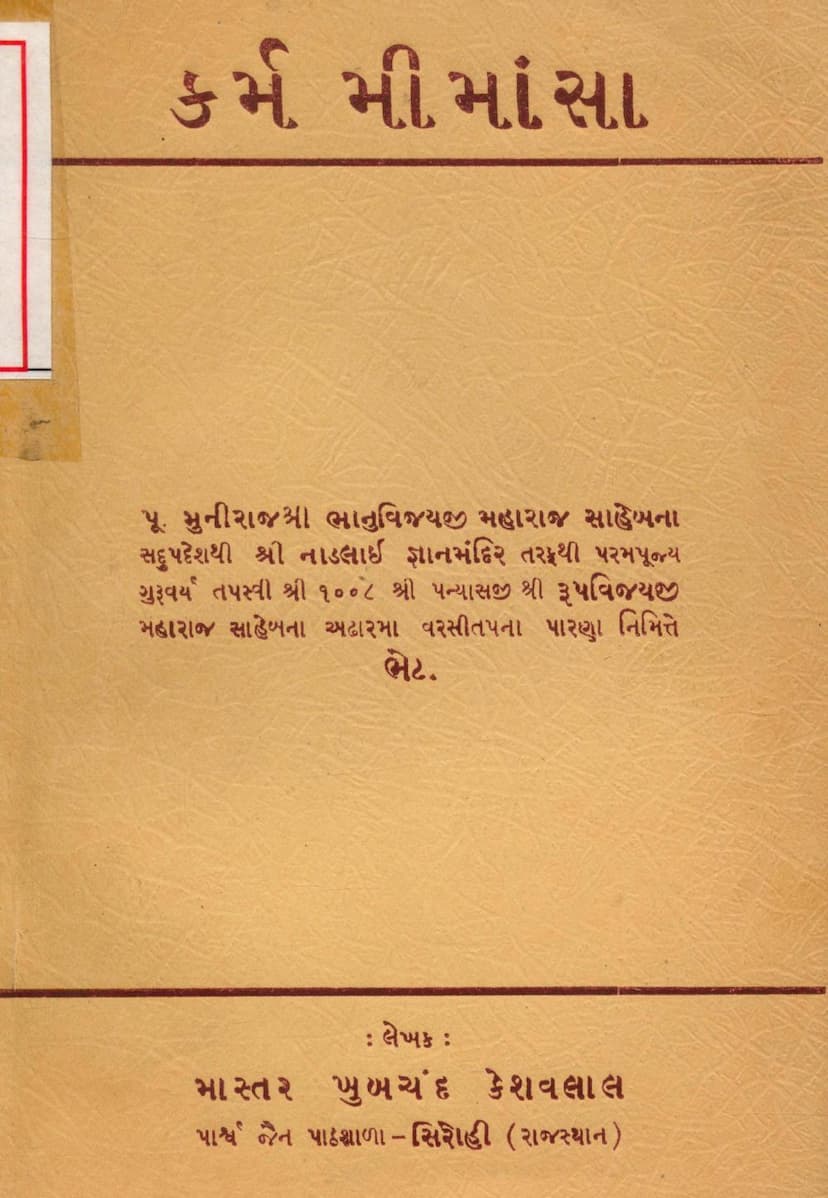 કર્મ મીમાંસા
પૂ. મુનીરાજશ્રી ભાનુવિજયજી મહારાજ સાહેબના
સદ્દુપદેશથી શ્રી નાડલાઈ જ્ઞાનમંદિર તરફથી પરમપૂજ્ય
ગુરૂવર્ય તપસ્વી શ્રી ૧૦૦૮ શ્રી પન્યાસજી શ્રી રૂપવિજયજી
મહારાજ સાહેબના અઢારમા વરસીતપના પારણા નિમિત્તે
ભેટ.
: લેખક :
માસ્તર ખુબચંદ કેશવલાલ
પાર્શ્વ જૈન પાઠશાળા – સિરોહી (રાજસ્થાન)